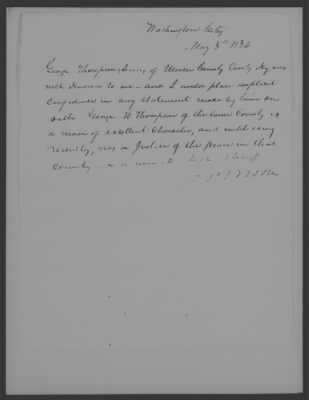 Washington City
May 5th 1834
George Thompson, Senior, of Mercer County County Ky was
well known to me and I would place implicit
confidence in any statement made by him on
oath George W Thompson of the same County is
a man of excellent Character, and until very
recently, was a Justice of the peace in that
County is now its high Sheriff